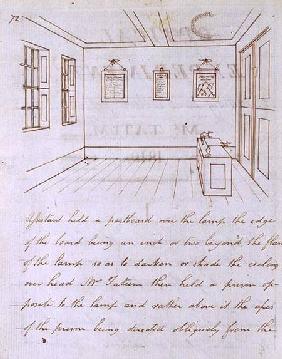 72
Upstairs held a pasteboard over the lamp the edge
of the board being an inch or two beyond the flame
of the lamp so as to darken or shade the ceiling
over head Mr Tatum then held a prism op-
posite to the lamp and rather above it the apex
of the prism being directed obliquely from the